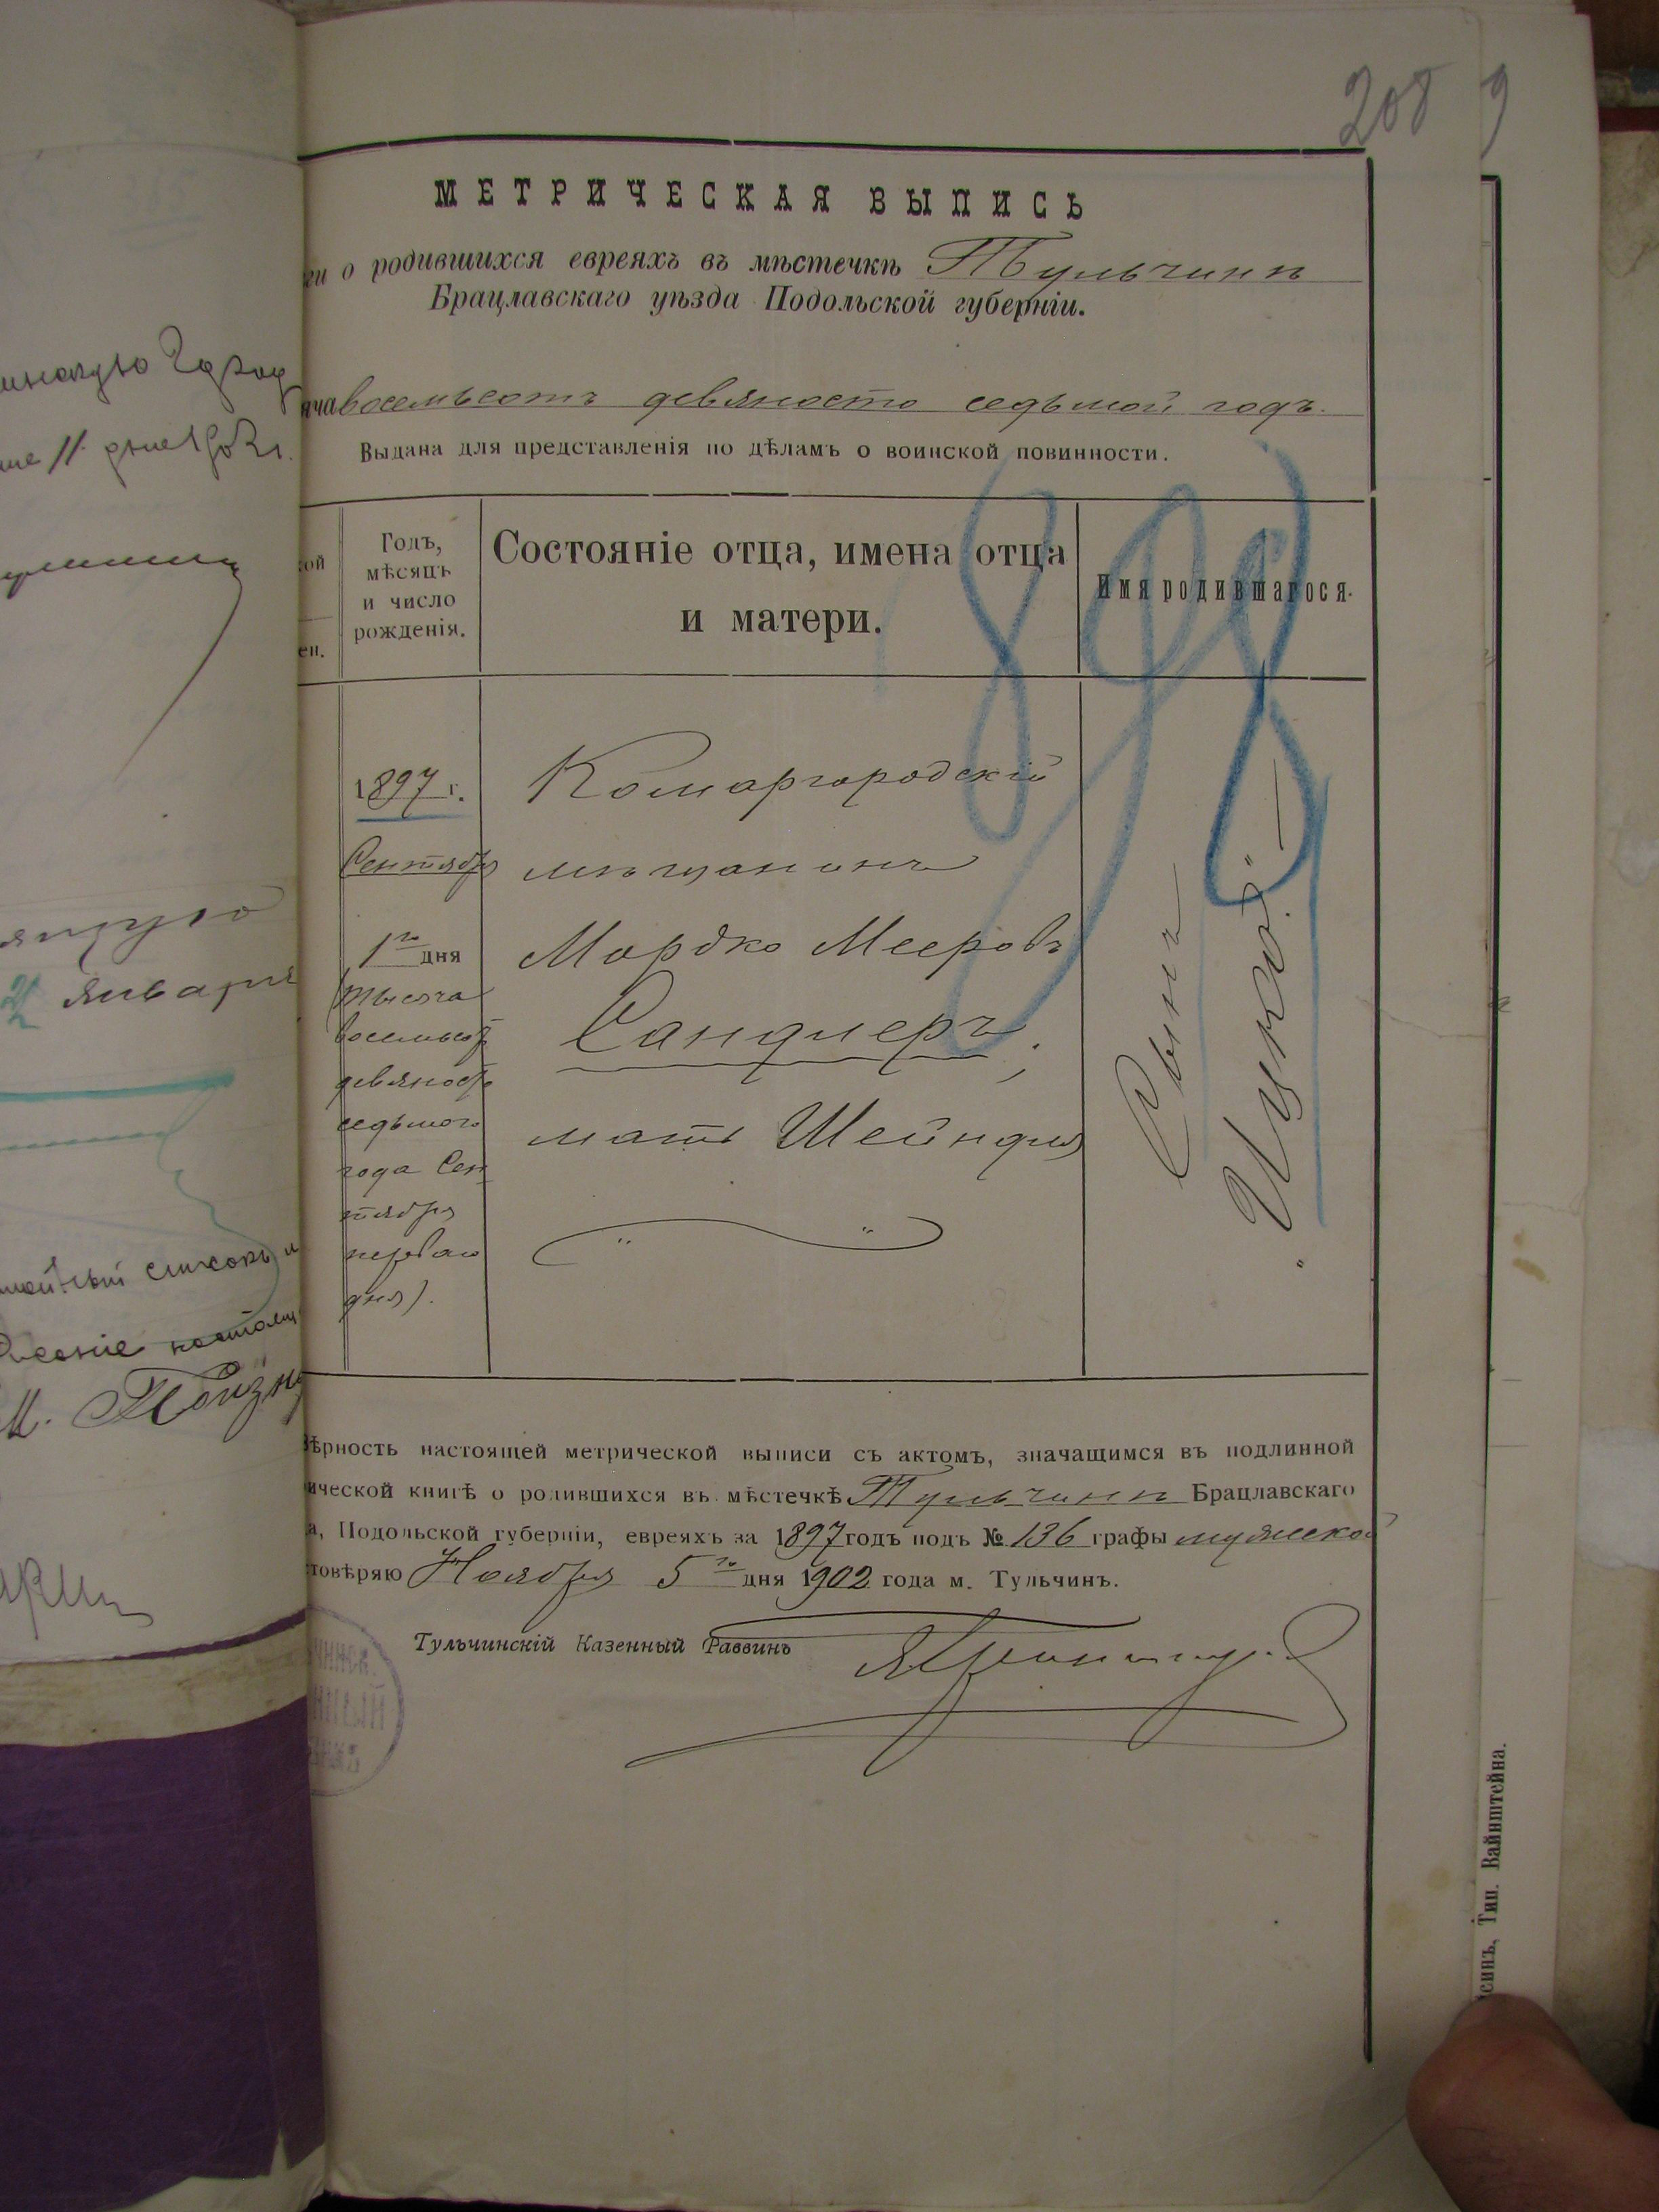 208
9
МЕТРИЧЕСКАЯ ВЫПИСЬ
ги о родившихся евреяхъ въ мѣстечкѣ Тульчинѣ
Брацлавскаго уѣзда Подольской губерніи.
яча восемьсотъ девяносто седьмой годъ.
Выдана для представленія по дѣламъ о воинской повинности.
ой
ен.
Годъ,
мѣсяцъ
и число
рожденія.
Состояніе отца, имена отца
и матери.
Имя родившагося.
1897 г.
Сентября
1го дня
(тысяча
восемьсот
девяносто
седьмого
года Сен
тября
перваго
дня).
Комаргородскій
мѣщанинъ
Мордко Мееровъ
Сандлеръ;
мать Шейндля
Сынъ
"Ицко".—
ѣрность настоящей метрической выписи съ актомъ, значащимся въ подлинной
ической книгѣ о родившихся въ мѣстечкѣ Тульчинѣ Брацлавскаго
а, Подольской губерніи, евреяхъ за 1897 годъ подъ № 136 графы мужской
товѣряю Ноября 5го дня 1902 года м. Тульчинъ.
Тульчинскій Казенный Раввинъ
синъ, Тип. Вайнштейна.
января
списокъ